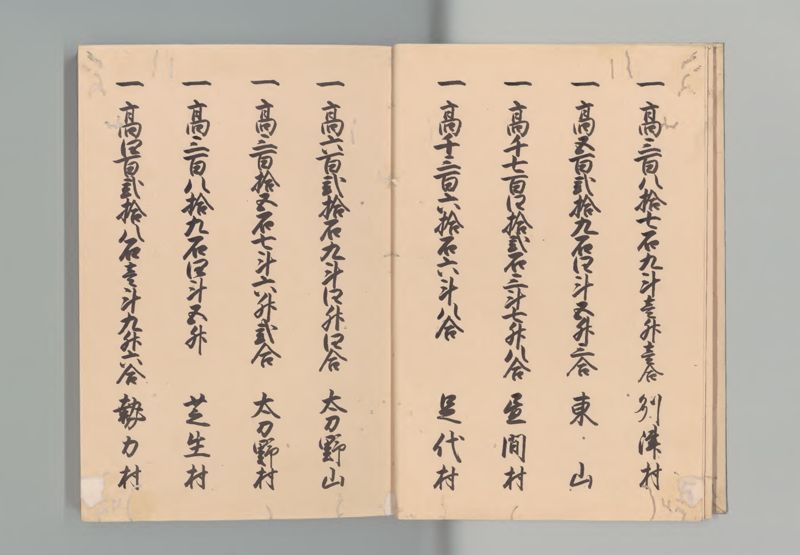 一高三百八拾七石九斗壱升壱合 列津村
一高五百弐拾九石四斗五升三合 東山
一高千七百四拾弐石三斗七升八合 昼間村
一高千三百六拾石六斗八合 足代村
一高六百弐拾石九斗四升四合 太刀野山
一高三百拾五石七斗六升弐合 太刀野村
一高三百八拾九石四斗五升 芝生村
一高四百弐拾八石壱斗九升六合 勢力村